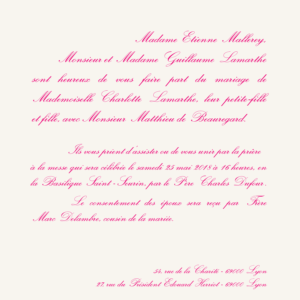 Madame Etienne Mallerey,
Monsieur et Madame Guillaume Lamarthe
sont heureux de vous faire part du mariage de
Mademoiselle Charlotte Lamarthe, leur petite-fille
et fille, avec Monsieur Matthieu de Beauregard.
Ils vous prient d'assister ou de vous unir par la prière
à la messe qui sera célébrée le samedi 25 mai 2018 à 16 heures, en
la Basilique Saint-Seurin, par le Père Charles Dufour.
Le consentement des époux sera reçu par Frère
Marc Delambre, cousin de la mariée.
54, rue de la Charité - 69000 Lyon
97, rue du Président Edouard Herriot - 69000 Lyon